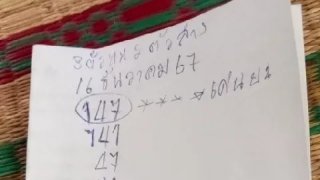 3ตัวตรง 2 ตัวล่าง
16 ธันวาคม 67
147 *** * เด่นบน
141
47